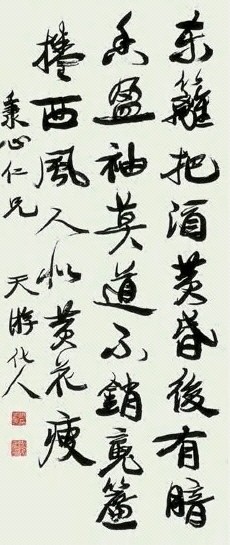 东籬把酒黄昏後有暗
香盈袖莫道不銷魂簾
捲西風人似黄花瘦
秉心仁兄 天游化人